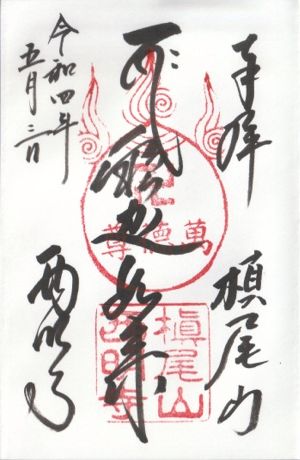 奉拝
槇尾山
釋迦如来
萬德尊
槇尾山
西明寺
令和四年
五月三日
西明寺